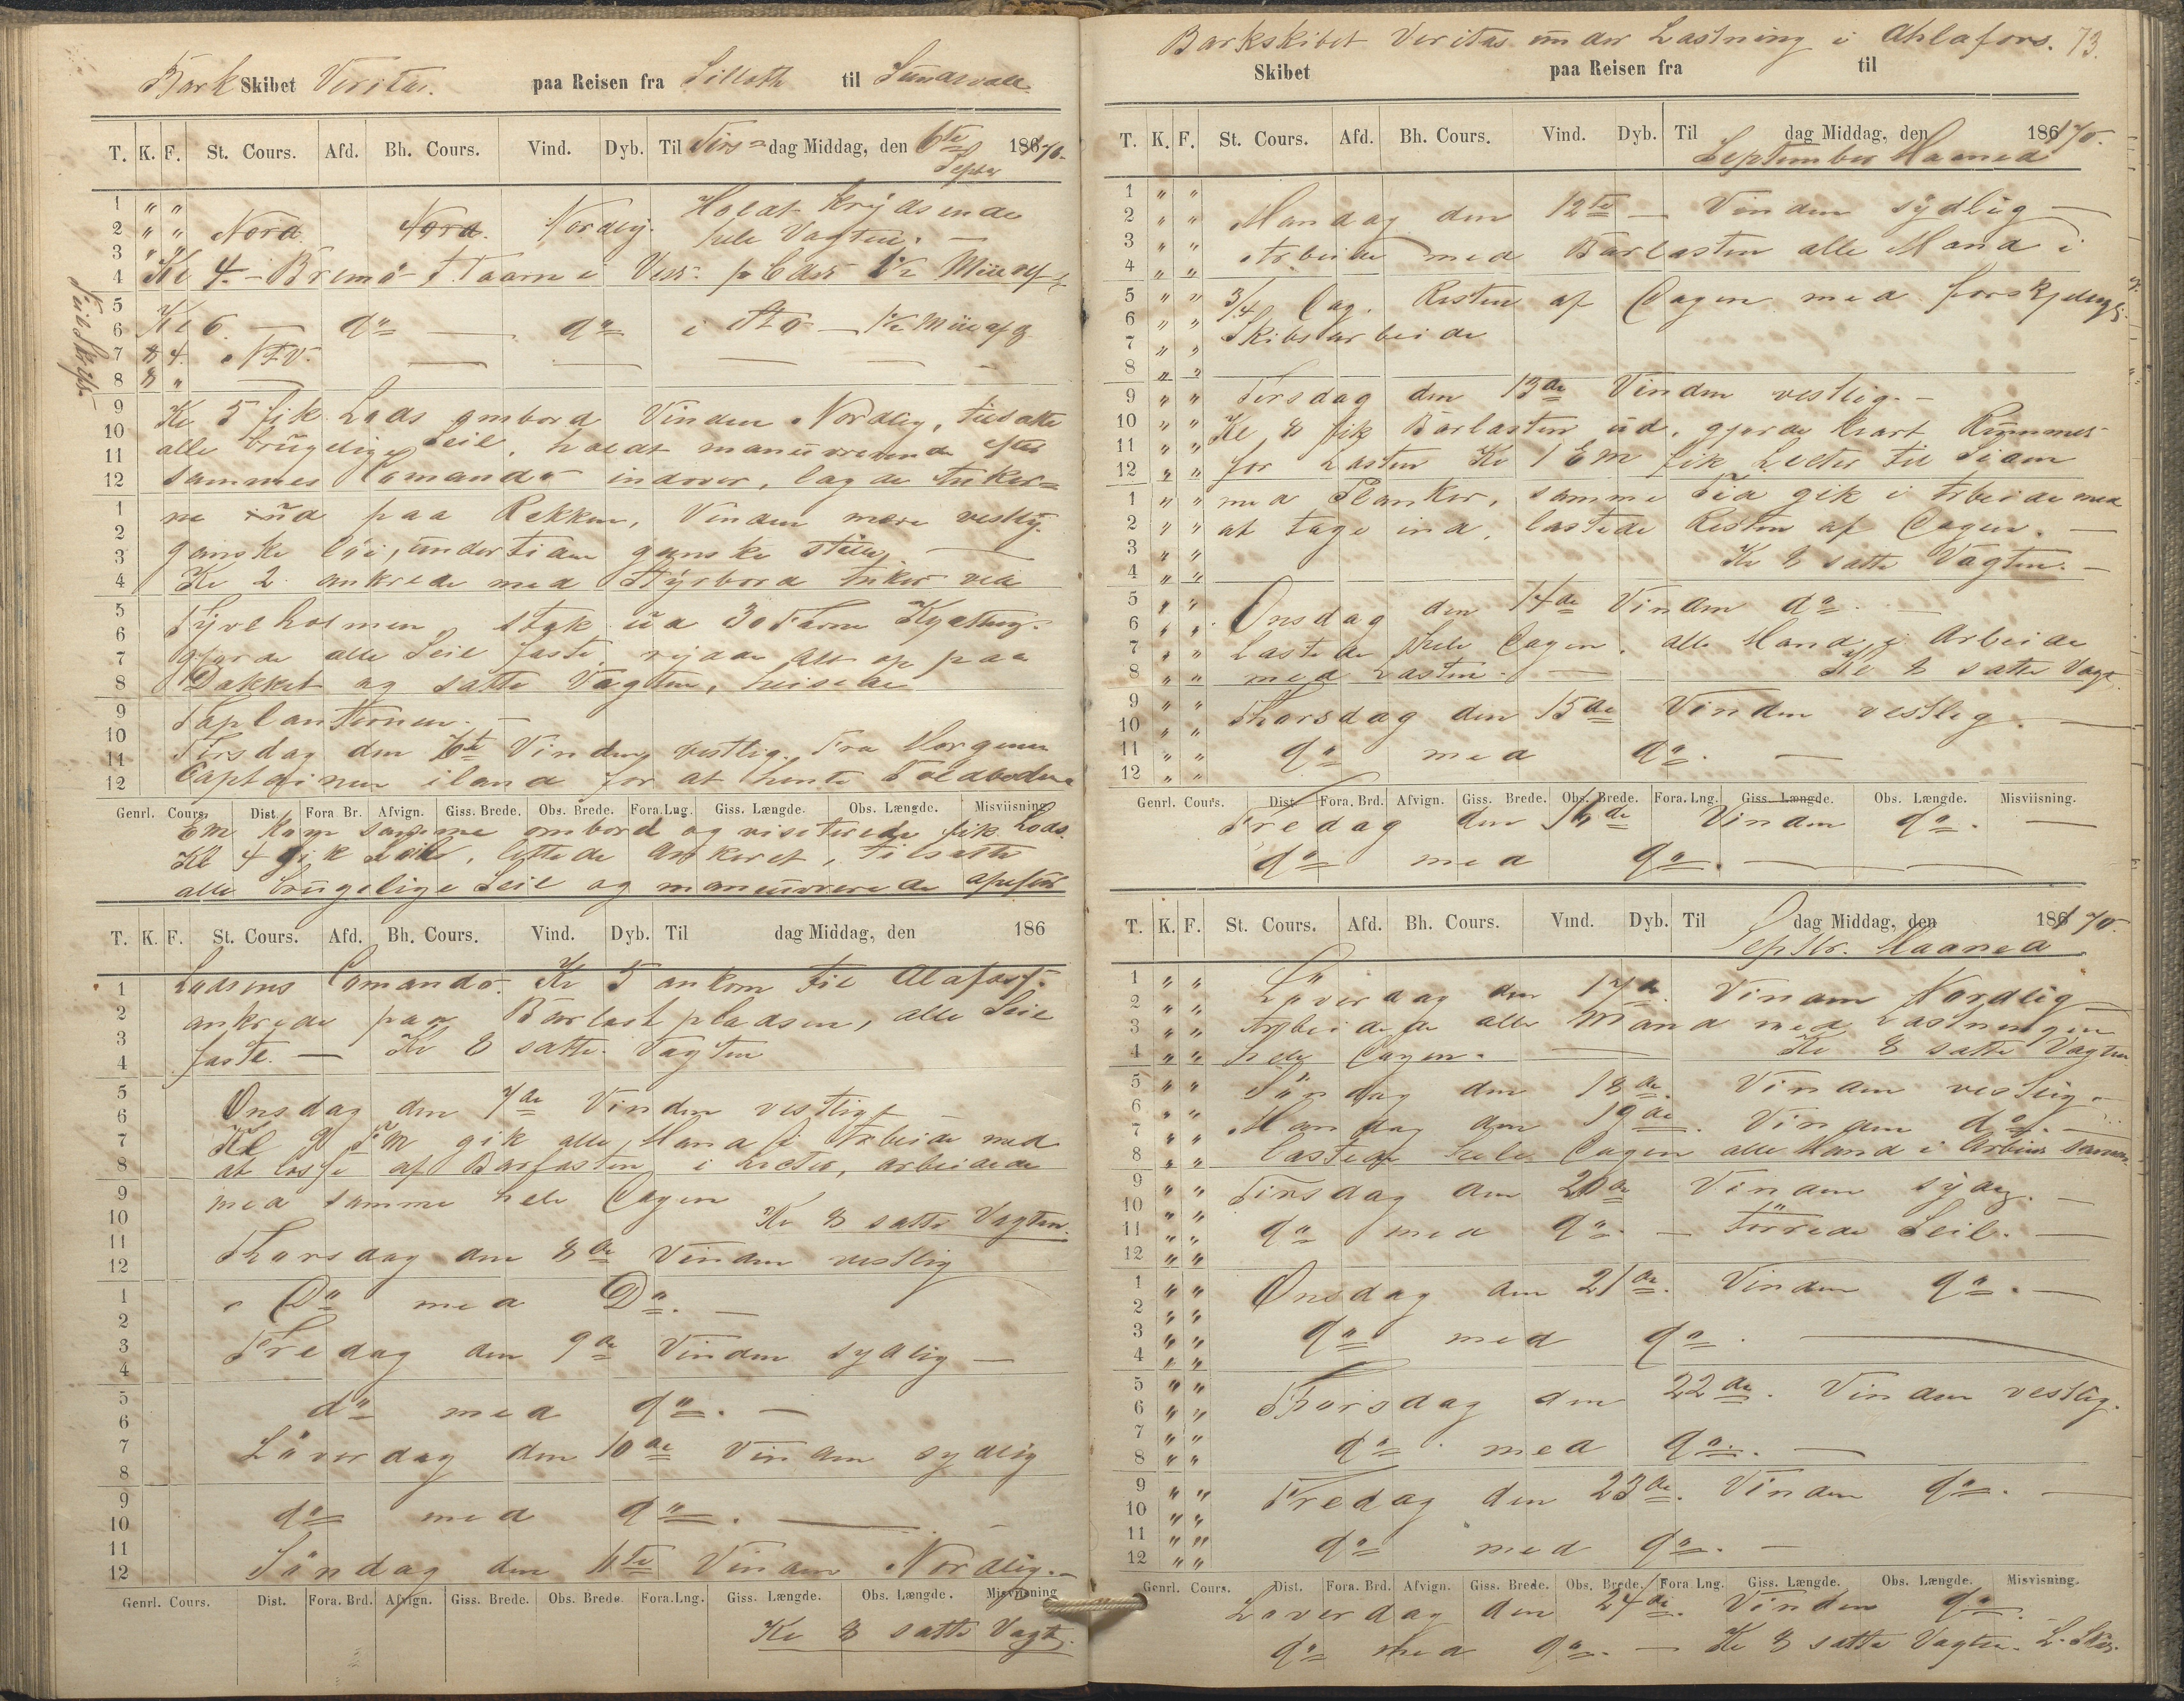 Bark Skibet Veritas. paa Reisen fra Silloth til Sundsvall
T. K. F. St. Cours. Afd. Bh. Cours. Vind. Dyb. Til Tirsdag Middag, den 6te Septbr 1870.
1 " "
2 " " Nord. Nord. Nordlig. Holdt Krydsende
3 " " hele Vagten. —
4 Kl 4. — Bremö F. Taarn i
5
6 Kl 6. — do — do i
7 8 4.
8 8 "
9 Kl 5 fik Lods ombord Vinden Nordlig, tilsatte
10 alle brugelige Seil, holdt manuvrerende efter
11
12 sammes Comando indover, lagde Anker=
1 ne ud paa Rekken, Vinden mere vestlig.
2
3 ganske löi, undertiden ganske stille, —
4 Kl 2 ankrede med Styrbord Anker ved
5 Tjuvholmen, stak ud 30 Favne Kjetting.
6
7 gjorde alle Seil faste, ryddede alt op paa
8 Dækket og satte Vagten, heisede
9 Toplanternen. —
10
11 Tirsdag den 6te Vinden vestlig. Fra Morgenen
12 Captainen iland for at hente Toldbetjent
Genrl. Cours. Dist. Fora Br. Afvign. Giss. Brede. Obs. Brede. Fora.Lng. Giss. Længde. Obs. Længde. Misviisning
Em Kom samme ombord og visiterede fik Lods.
Kl 4 gik Seil, lettede Ankeret, tilsatte
alle brugelige Seil og maneuvrerede
T. K. F. St. Cours. Afd. Bh. Cours. Vind. Dyb. Til dag Middag, den 186
1 Lodsens Comando. Kl 5 ankom til Alafors.
2 ankrede paa Barlastpladsen, alle Seil
3
4 faste. — Kl 8 satte Vagten
5
6 Onsdag den 7de Vinden vestlig —
7 Kl gik alle Mand i Arbeide med
8 at losse af Barlasten i Lecter, arbeidede
9 med samme hele Dagen
10 Kl 8 satte Vagten.
11
12 Thorsdag den 8de Vinden vestlig
1 Do med Do. —
2
3 Fredag den 9de Vinden sydlig —
4
5 do med do. —
6
7 Löverdag den 10de Vinden sydlig
8
9 do med do. —
10
11
12 Söndag den 11te Vinden Nordlig. —
Genrl. Cours. Dist. Fora. Brd. Afvign. Giss. Brede. Obs. Brede. Fora.Lng. Giss. Længde. Obs. Længde. Misviisning
Kl 8 satte Vagt.
Barkskibet Veritas under Lastning i Ahlafors. 73.
Skibet paa Reisen fra til
T. K. F. St. Cours. Afd. Bh. Cours. Vind. Dyb. Til dag Middag, den 1870.
September Maaned
1 " "
2 " " Mandag den 12te — Vinden sydlig —
3 " " Arbeidet med Barlasten alle Mand i
4 " "
5 " " 3/4 Dag. Resten af Dagen med forskjelligt
6 " " Skibsarbeide
7 " "
8 " "
9 " " Tirsdag den 13de Vinden vestlig. —
10 " " Kl 8 fik Barlasten ud. gjorde klart Rummet
11 " "
12 " " for Lasten Kl 1 Em fik Lecter til Siden
1 " " med Planker, samme Tid gik i Arbeide med
2 " " at tage ind, lastede Resten af Dagen. —
3 " "
4 " " Kl 8 satte Vagten. —
5 " "
6 " " Onsdag den 14de Vinden do. —
7 " " Lastede hele Dagen, alle Mand i Arbeide
8 " " med Lasten. — Kl 8 satte Vagt.
9 " "
10 " " Thorsdag den 15de Vinden vestlig. —
11 " " do med do. —
12 " "
Genrl. Cours. Dist. Fora. Brd. Afvign. Giss. Brede. Obs. Brede. Fora.Lng. Giss. Længde. Obs. Længde. Misviisning.
Fredag den 16de Vinden do. —
do med do. —
T. K. F. St. Cours. Afd. Bh. Cours. Vind. Dyb. Til dag Middag, den 1870.
Septbr. Maaned
1 " "
2 " " Löverdag den 17de. Vinden Nordlig —
3 " " Arbeidede alle Mand med Lastningen
4 " " hele Dagen. — Kl 8 satte Vagten
5 " " Söndag den 18de. Vinden vestlig. —
6 " "
7 " " Mandag den 19de. Vinden do. —
8 " " Lastede hele Dagen alle Mand i Arbeide
9 " " Tirsdag den 20de Vinden sydlig. —
10 " "
11 " " do med do. — Törrede Seil. —
12 " "
1 " " Onsdag den 21de. Vinden do. —
2 " "
3 " " do med do. —
4 " "
5 " "
6 " " Thorsdag den 22de. Vinden vestlig.
7 " "
8 " " do med do. —
9 " "
10 " " Fredag den 23de. Vinden do. —
11 " "
12 " " do med do. —
Genrl. Cours. Dist. Fora. Brd. Afvign. Giss. Brede. Obs. Brede. Fora Lng. Giss. Længde. Obs. Længde. Misvisning.
Löverdag den 24de. Vinden do.
do med do. — Kl 8 satte Vagten.